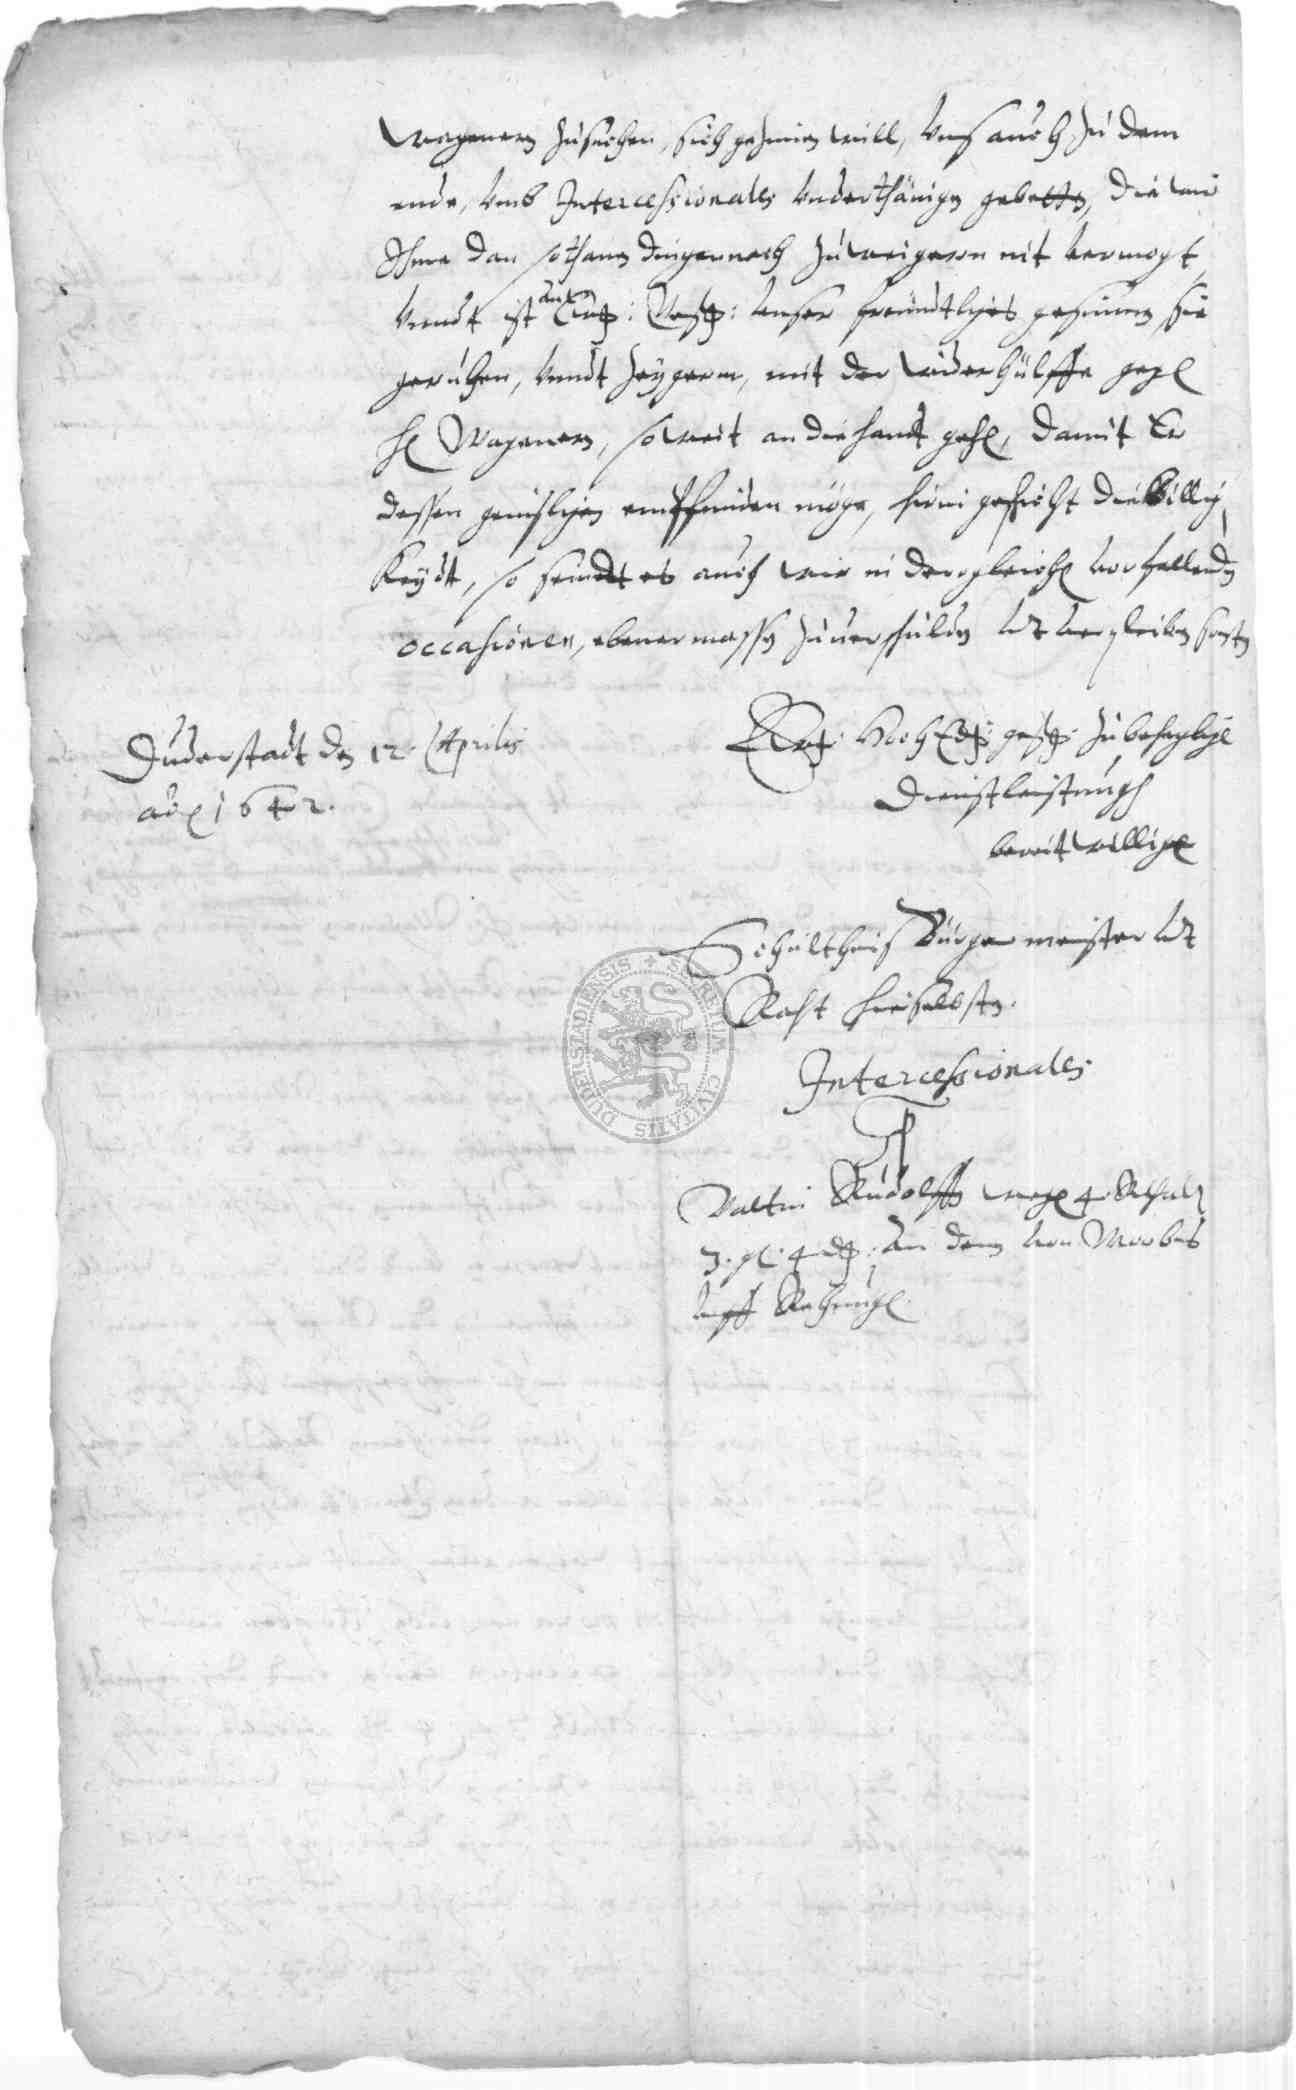 Wagenern zusuchen, sich geziemen will, Unß auch zu dem
ende, Umb Intercessionales Underthänigen gebetten, die wir
Ihme dan sothanen dingen nach zu weigern nit vermogt
Undt ist an Ew: Unser freündtliches gesinnen, sie
geruhen, Undt Zeygern, mit der hülffe gegen
H Wagenern, so weit an die handt gehen, damit Er
dessen genißlichen empfinden möge, hirin geschicht die billig
Keydt, so seindt es auch wir in dergleichen vorfallenden
occasionen, ebener massen zuverschulden
Duderstadt den 12. Aprilis
ao 1642.
Ew: HochEd: zu behaglichen
Dienstleistung
bereitwillige
Schultheis Bürgermeister Und
Raht hieselbsten.
Intercessionales
Valtin Rudolffen wegen 4 Rthall
3. gl. 4 d: an dem von Worbis
uff
SECRETUM CIVITATIS DUDERSTADIENSIS